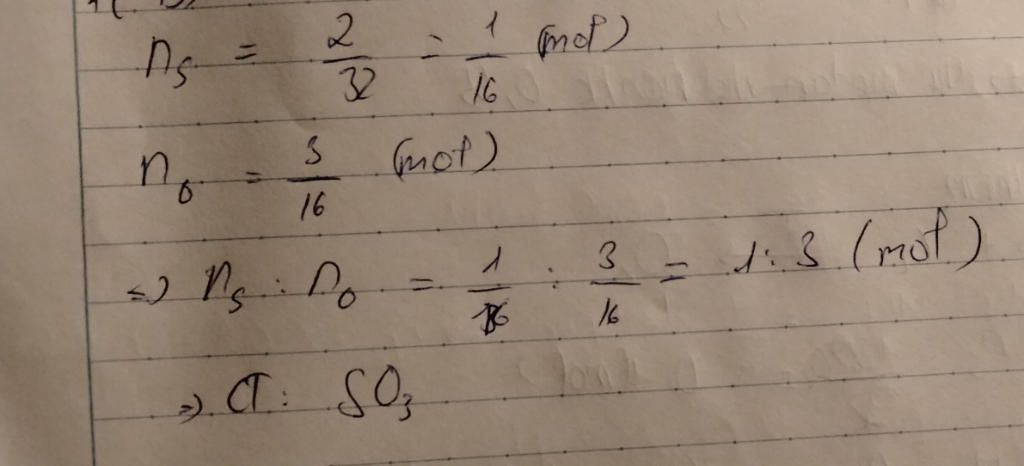 n_S = 2/32 = 1/16 (mol)
n_O = 3/16 (mol)
=> n_S : n_O = 1/16 : 3/16 = 1 : 3 (mol)
=> CT : SO_3